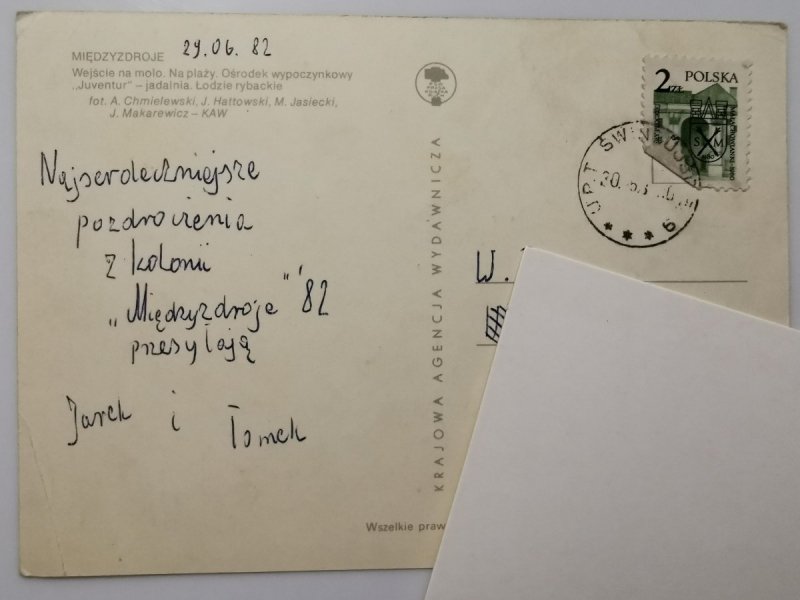 MIĘDZYZDROJE 29.06.82
Wejście na molo. Na plaży. Ośrodek wypoczynkowy
„Juventur” – jadalnia. Łodzie rybackie
fot. A. Chmielewski, J. Hattowski, M. Jasiecki,
J. Makarewicz – KAW
Najserdeczniejsze
pozdrowienia
z kolonii
„Międzyzdroje” '82
przesyłają
Jarek i Tomek
KRAJOWA AGENCJA WYDAWNICZA
Wszelkie praw
2 ZŁ POLSKA
S M
UPT ŚWI
W.